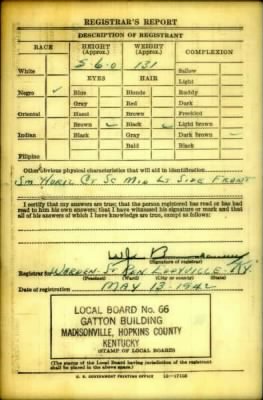 REGISTRAR'S REPORT
DESCRIPTION OF REGISTRANT
RACE HEIGHT (Approx.) WEIGHT (Approx.) COMPLEXION
White 5-6-0 131 Sallow
EYES HAIR Light
Negro ✓ Blue Blonde Ruddy
Gray Red Dark
Oriental Hazel Brown Freckled
Brown ✓ Black ✓ Light brown
Indian Black Gray Dark brown ✓
Bald Black
Filipino
Other obvious physical characteristics that will aid in identification
Sm Horiz Ct Sc Mid Lt Side Front
I certify that my answers are true; that the person registered has read or has had
read to him his own answers; that I have witnessed his signature or mark and that
all of his answers of which I have knowledge are true, except as follows:
(Signature of registrar)
Registrar for Ky.
(Precinct) (Ward) (City or county) (State)
Date of registration MAY 13-1942
LOCAL BOARD No. 66
GATTON BUILDING
MADISONVILLE, HOPKINS COUNTY
KENTUCKY
(STAMP OF LOCAL BOARD)
(The stamp of the Local Board having jurisdiction of the registrant
shall be placed in the above space.)
U. S. GOVERNMENT PRINTING OFFICE